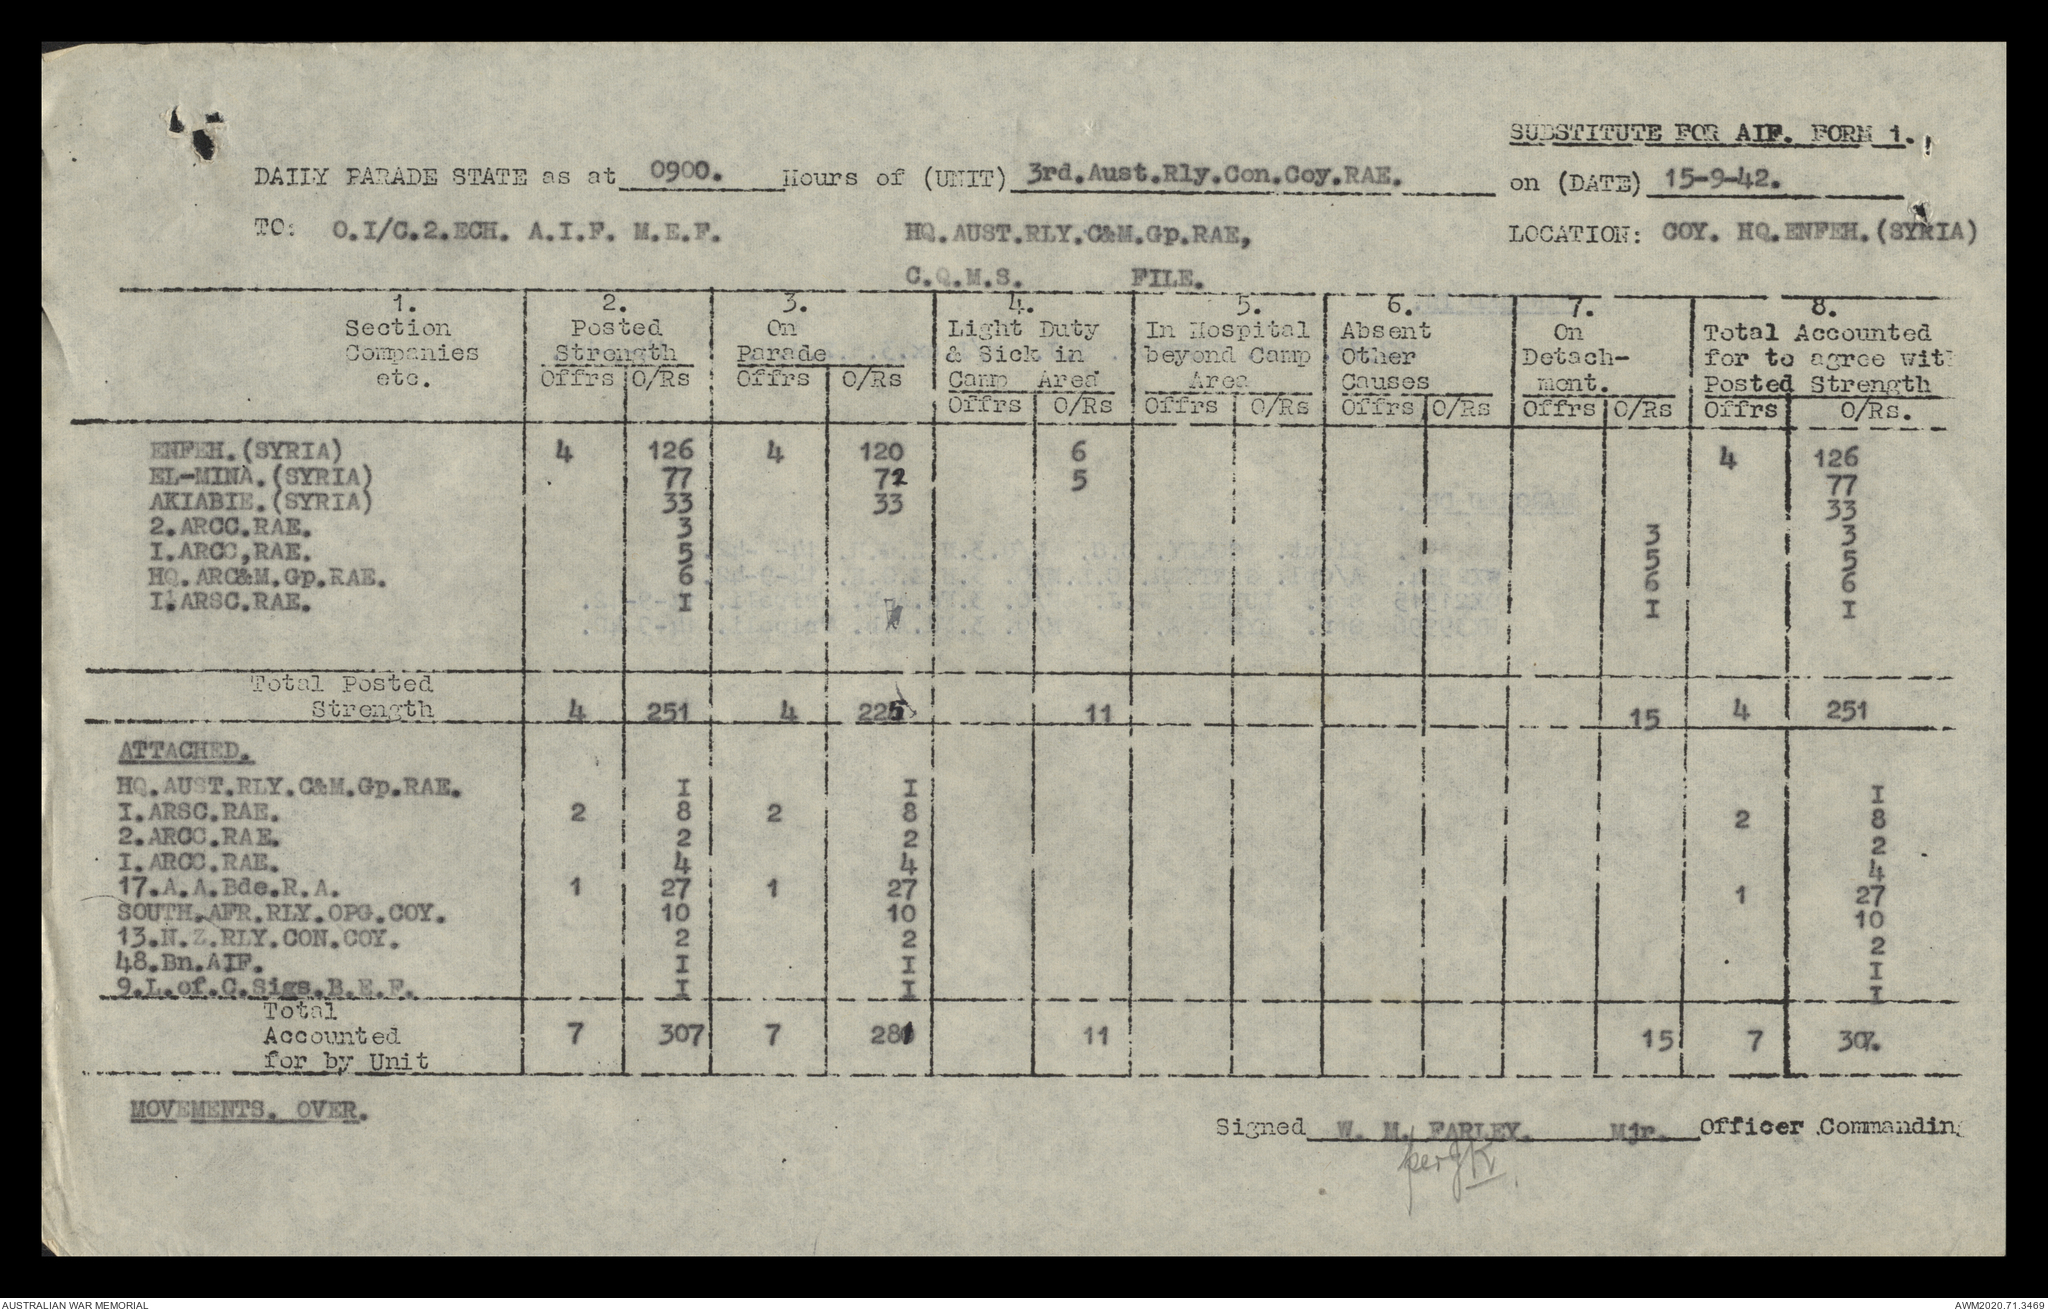 SUBSTITUTE FOR AIF. FORM 1.
DAILY PARADE STATE as at 0900. Hours of (UNIT) 3rd.Aust.Rly.Con.Coy.RAE. on (DATE) 15-9-42.
TO: O.I/C.2.ECH. A.I.F. M.E.F. HQ.AUST.RLY.C&M.Gp.RAE, LOCATION: COY. HQ.ENFEH.(SYRIA)
C.Q.M.S. FILE.
1. 2. 3. 4. 5. 6. 7. 8.
Section Posted On Light Duty In Hospital Absent On Total Accounted
Companies Strength Parade & Sick in beyond Camp Other Detach- for to agree wit
etc. Offrs O/Rs Offrs O/Rs Camp Area Area Causes ment. Posted Strength
Offrs O/Rs Offrs O/Rs Offrs O/Rs Offrs O/Rs Offrs O/Rs.
ENFEH.(SYRIA) 4 126 4 120 6 4 126
EL-MINA.(SYRIA) 77 72 5 77
AKIABIE.(SYRIA) 33 33 33
2.ARCC.RAE. 3 3 3
I.ARCC,RAE. 5 5 5
HQ.ARC&M.Gp.RAE. 6 6 6
I.ARSC.RAE. I I I
Total Posted
Strength 4 251 4 225 11 15 4 251
ATTACHED.
HQ.AUST.RLY.C&M.Gp.RAE. I I I
I.ARSC.RAE. 2 8 2 8 2 8
2.ARCC.RAE. 2 2 2
I.ARCC.RAE. 4 4 4
17.A.A.Bde.R.A. 1 27 1 27 1 27
SOUTH.AFR.RLY.OPG.COY. 10 10 10
13.N.Z.RLY.CON.COY. 2 2 2
48.Bn.AIF. I I I
9.L.of.C.Sigs.B.E.F. I I I
Total
Accounted 7 307 7 281 11 15 7 307.
for by Unit
MOVEMENTS. OVER.
Signed W. M. FARLEY. Mjr. Officer Commanding
per JK
AUSTRALIAN WAR MEMORIAL AWM2020.71.3469